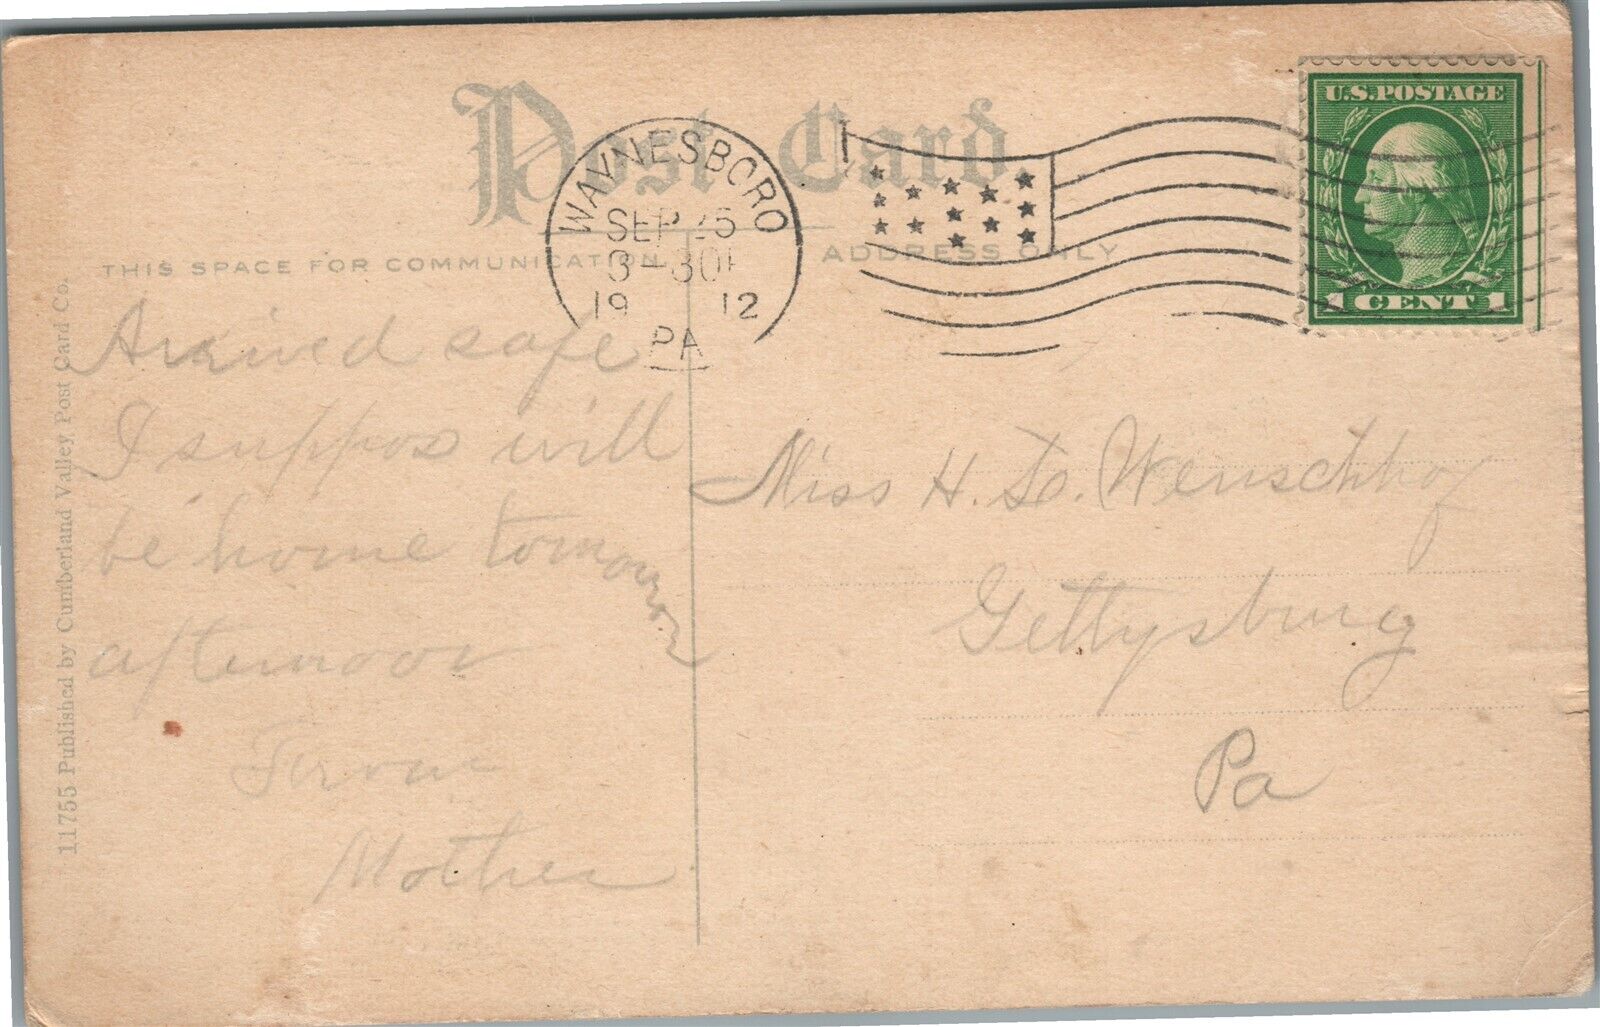 Post Card
U.S.POSTAGE
1 CENT 1
WAYNESBORO
SEP 25
3-30P
19 12
PA
THIS SPACE FOR COMMUNICATION.
ADDRESS ONLY
Arrived safe
I suppos will
be home tomorrow
afternoon
From
Mother
Miss H. Wenschhof
Gettysburg
Pa
11755 Published by Cumberland Valley Post Card Co.